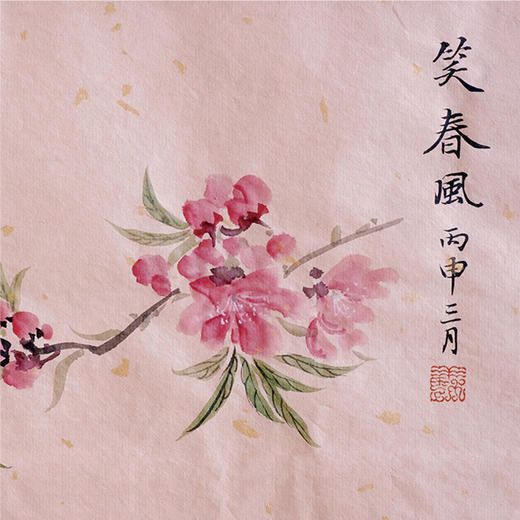 笑春風丙申三月